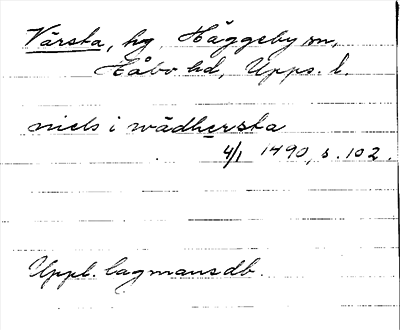 Vårsta, hg, Häggeby sn,
Håbo hd, Upps. l.
niels i wådhersta
4/1 1490, s. 102.
Uppl. lagmansdb.